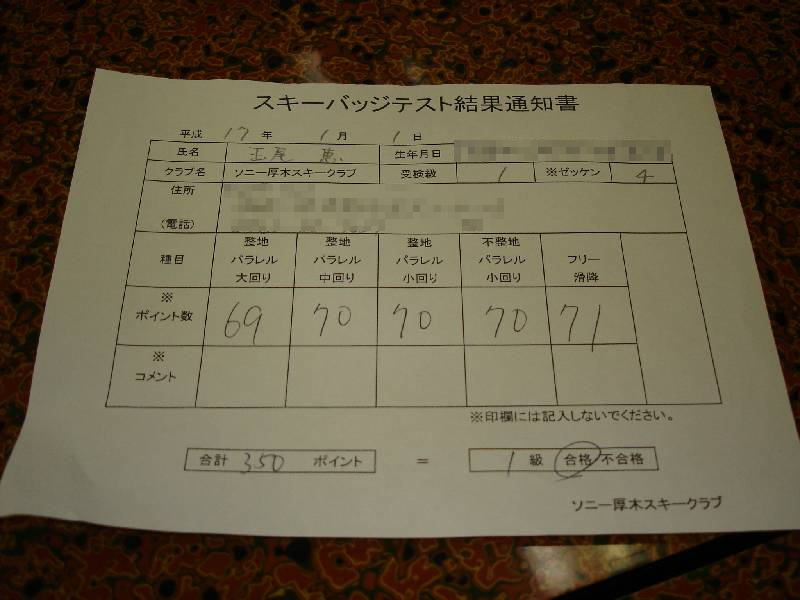 スキーバッジテスト結果通知書
平成 17 年 1 月 1 日
氏名 玉尾 恵 生年月日
クラブ名 ソニー厚木スキークラブ 受検級 1 ※ゼッケン 4
住所
(電話)
種目 整地 パラレル 大回り 整地 パラレル 中回り 整地 パラレル 小回り 不整地 パラレル 小回り フリー 滑降
※ ポイント数 69 70 70 70 71
※ コメント
※印欄には記入しないでください。
合計 350 ポイント = 1 級 合格 不合格
ソニー厚木スキークラブ